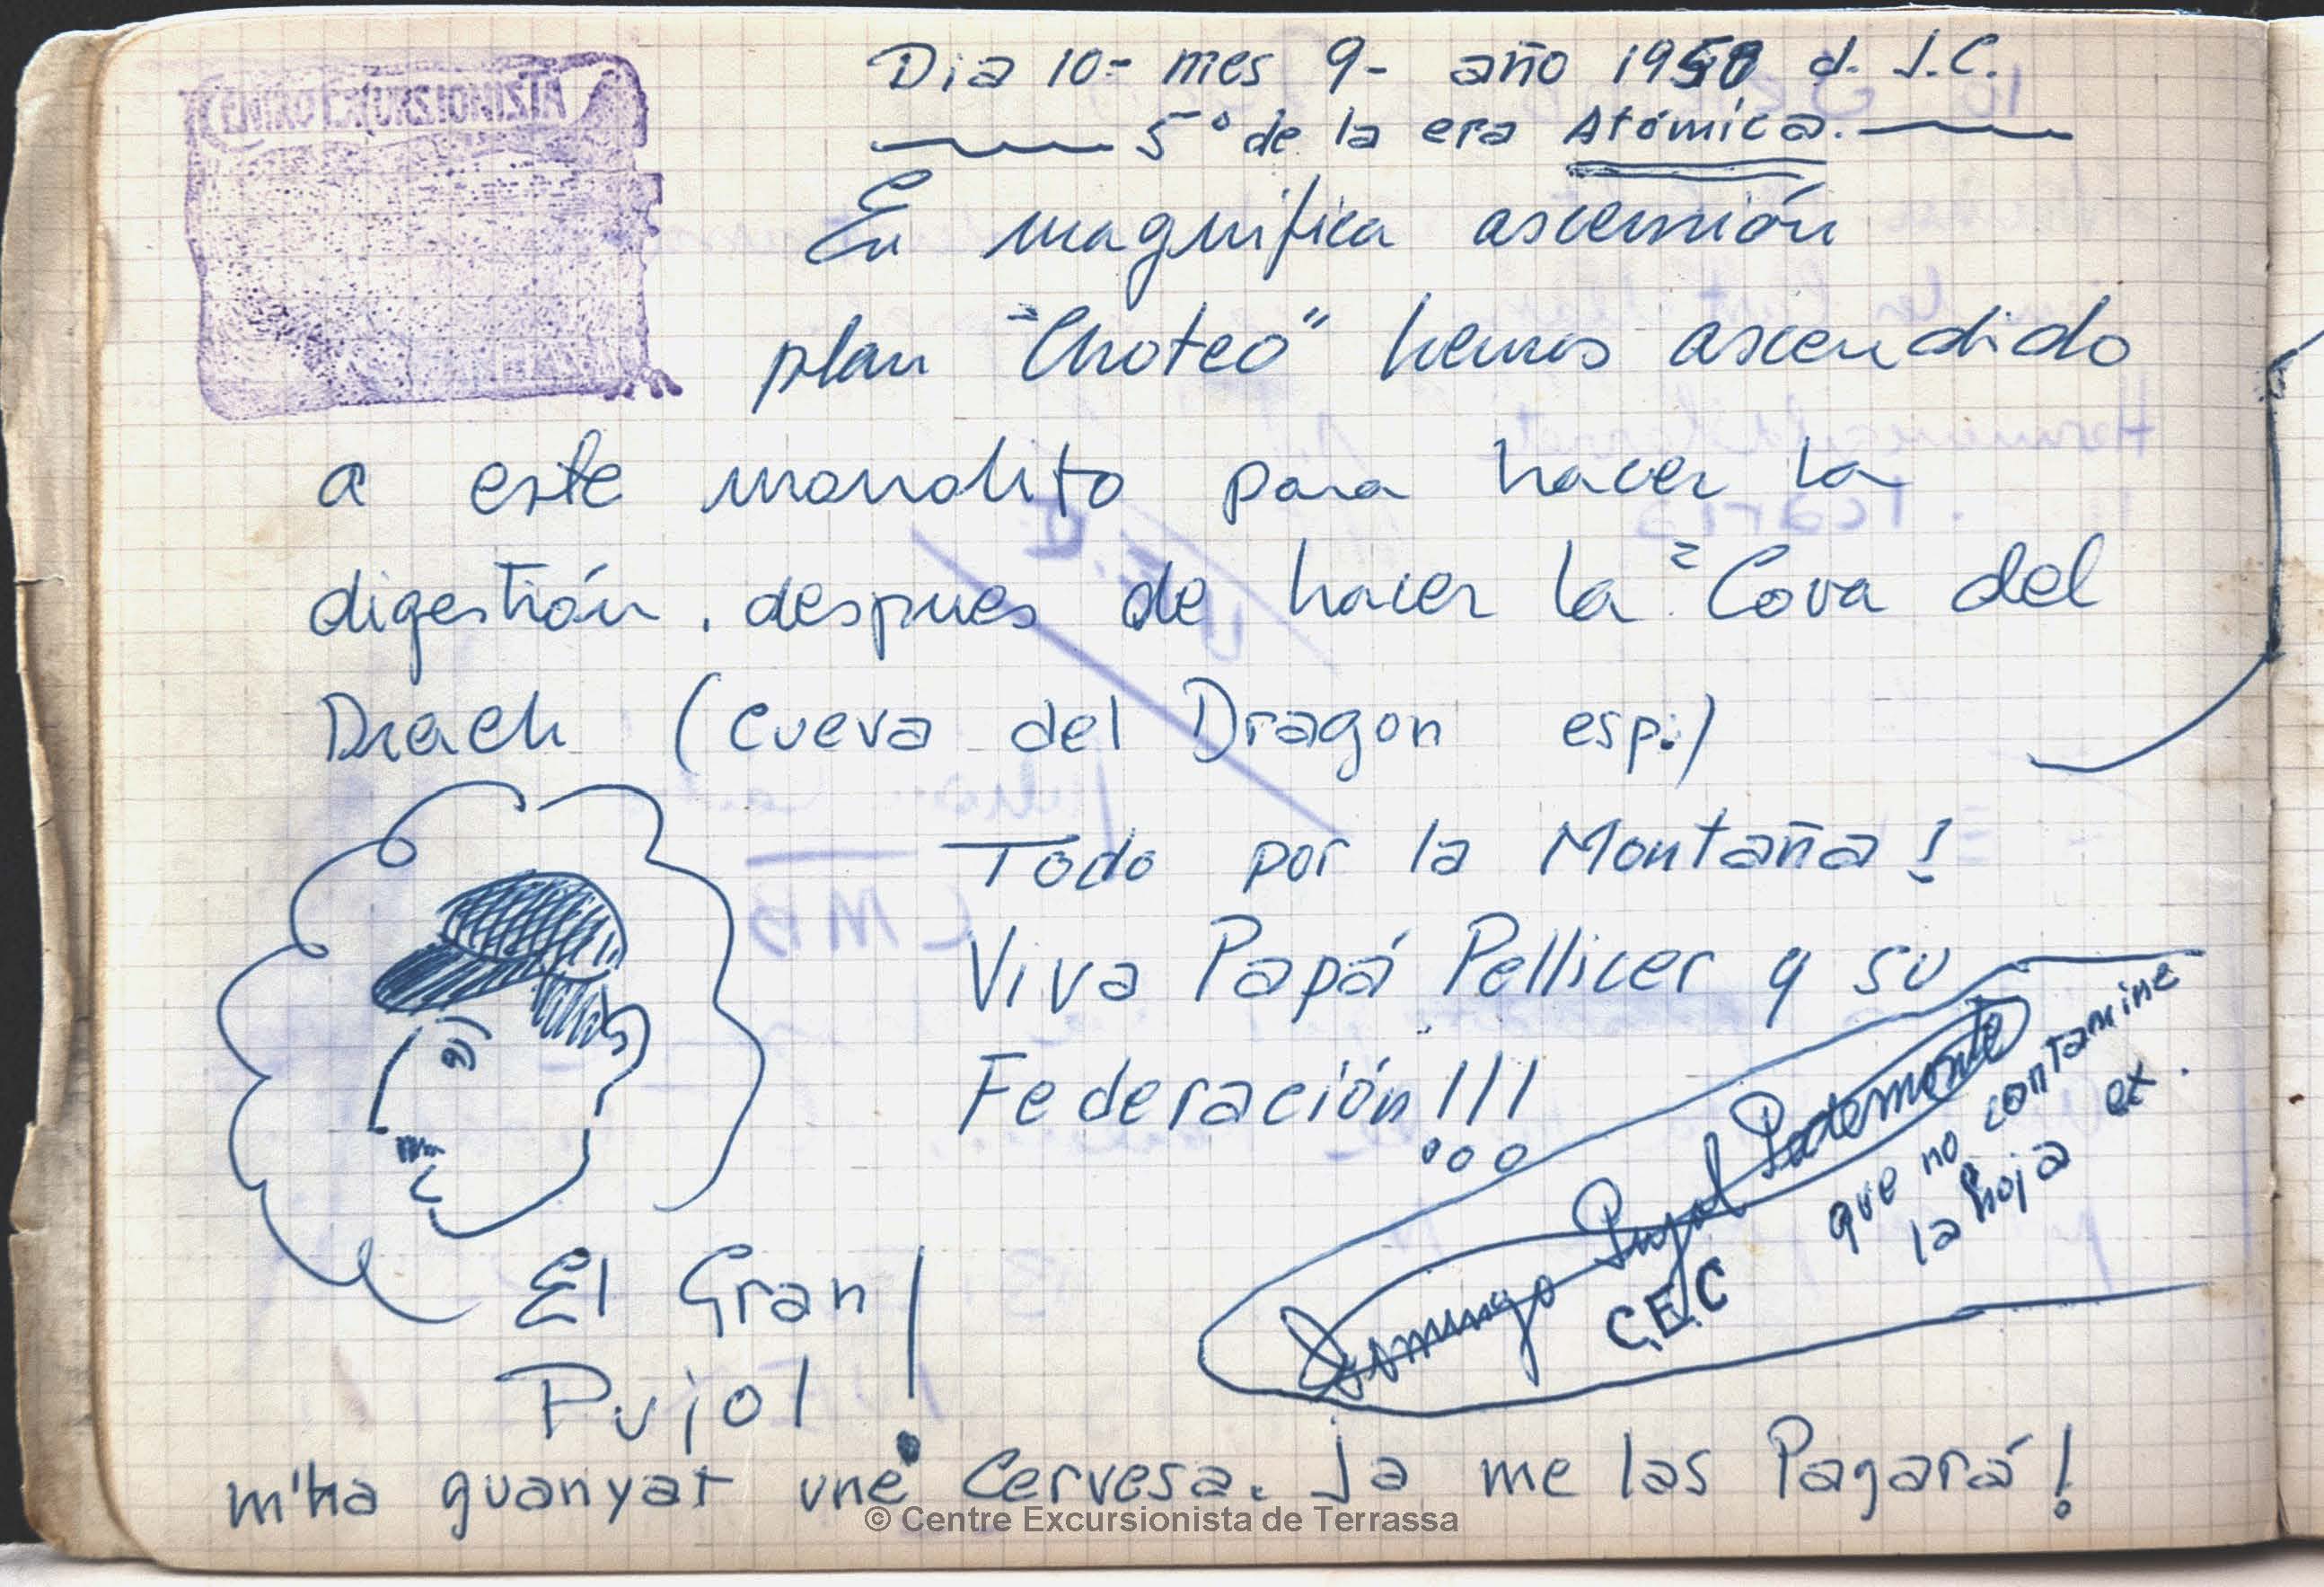 CENTRO EXCURSIONISTA
Dia 10- mes 9- año 1950 d. J.C.
5º de la era Atómica.
En magnifica ascensión
plan "Choteo" hemos ascendido
a este monolito para hacer la
digestión. despues de hacer la "Cova del
Drach (cueva del Dragon esp.)
Todo por la Montaña!
Viva Papá Pellicer y su
Federación!!!
Domingo Pujol Pedemonte
C.E.C
que no contamine
la hoja ex.
El Gran
Pujol!
m'ha guanyat une Cervesa. Ja me las Pagará!
© Centre Excursionista de Terrassa